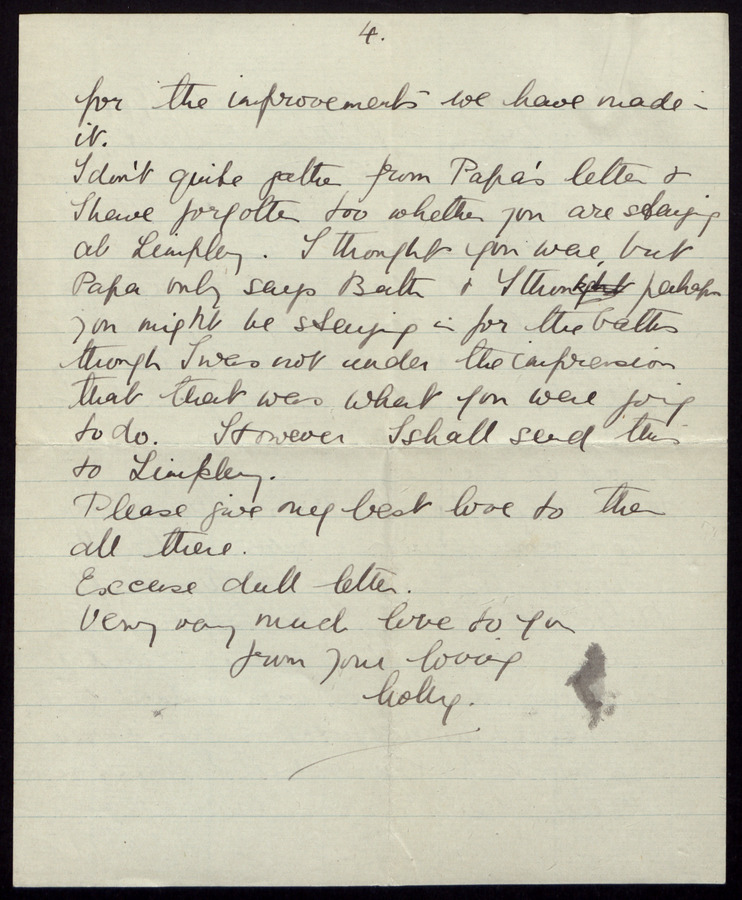 4.
for the improvements we have made in
it.
I don't quite gather from Papa's letter &
I have forgotten too whether you are staying
at Limpley. I thought you were, but
Papa only says Bath & I thought perhaps
you might be staying in for the baths
though I was not under the impression
that that was what you were going
to do. However I shall send this
to Limpley.
Please give my best love to them
all there.
Excuse dull letter.
Very very much love to you
from your loving